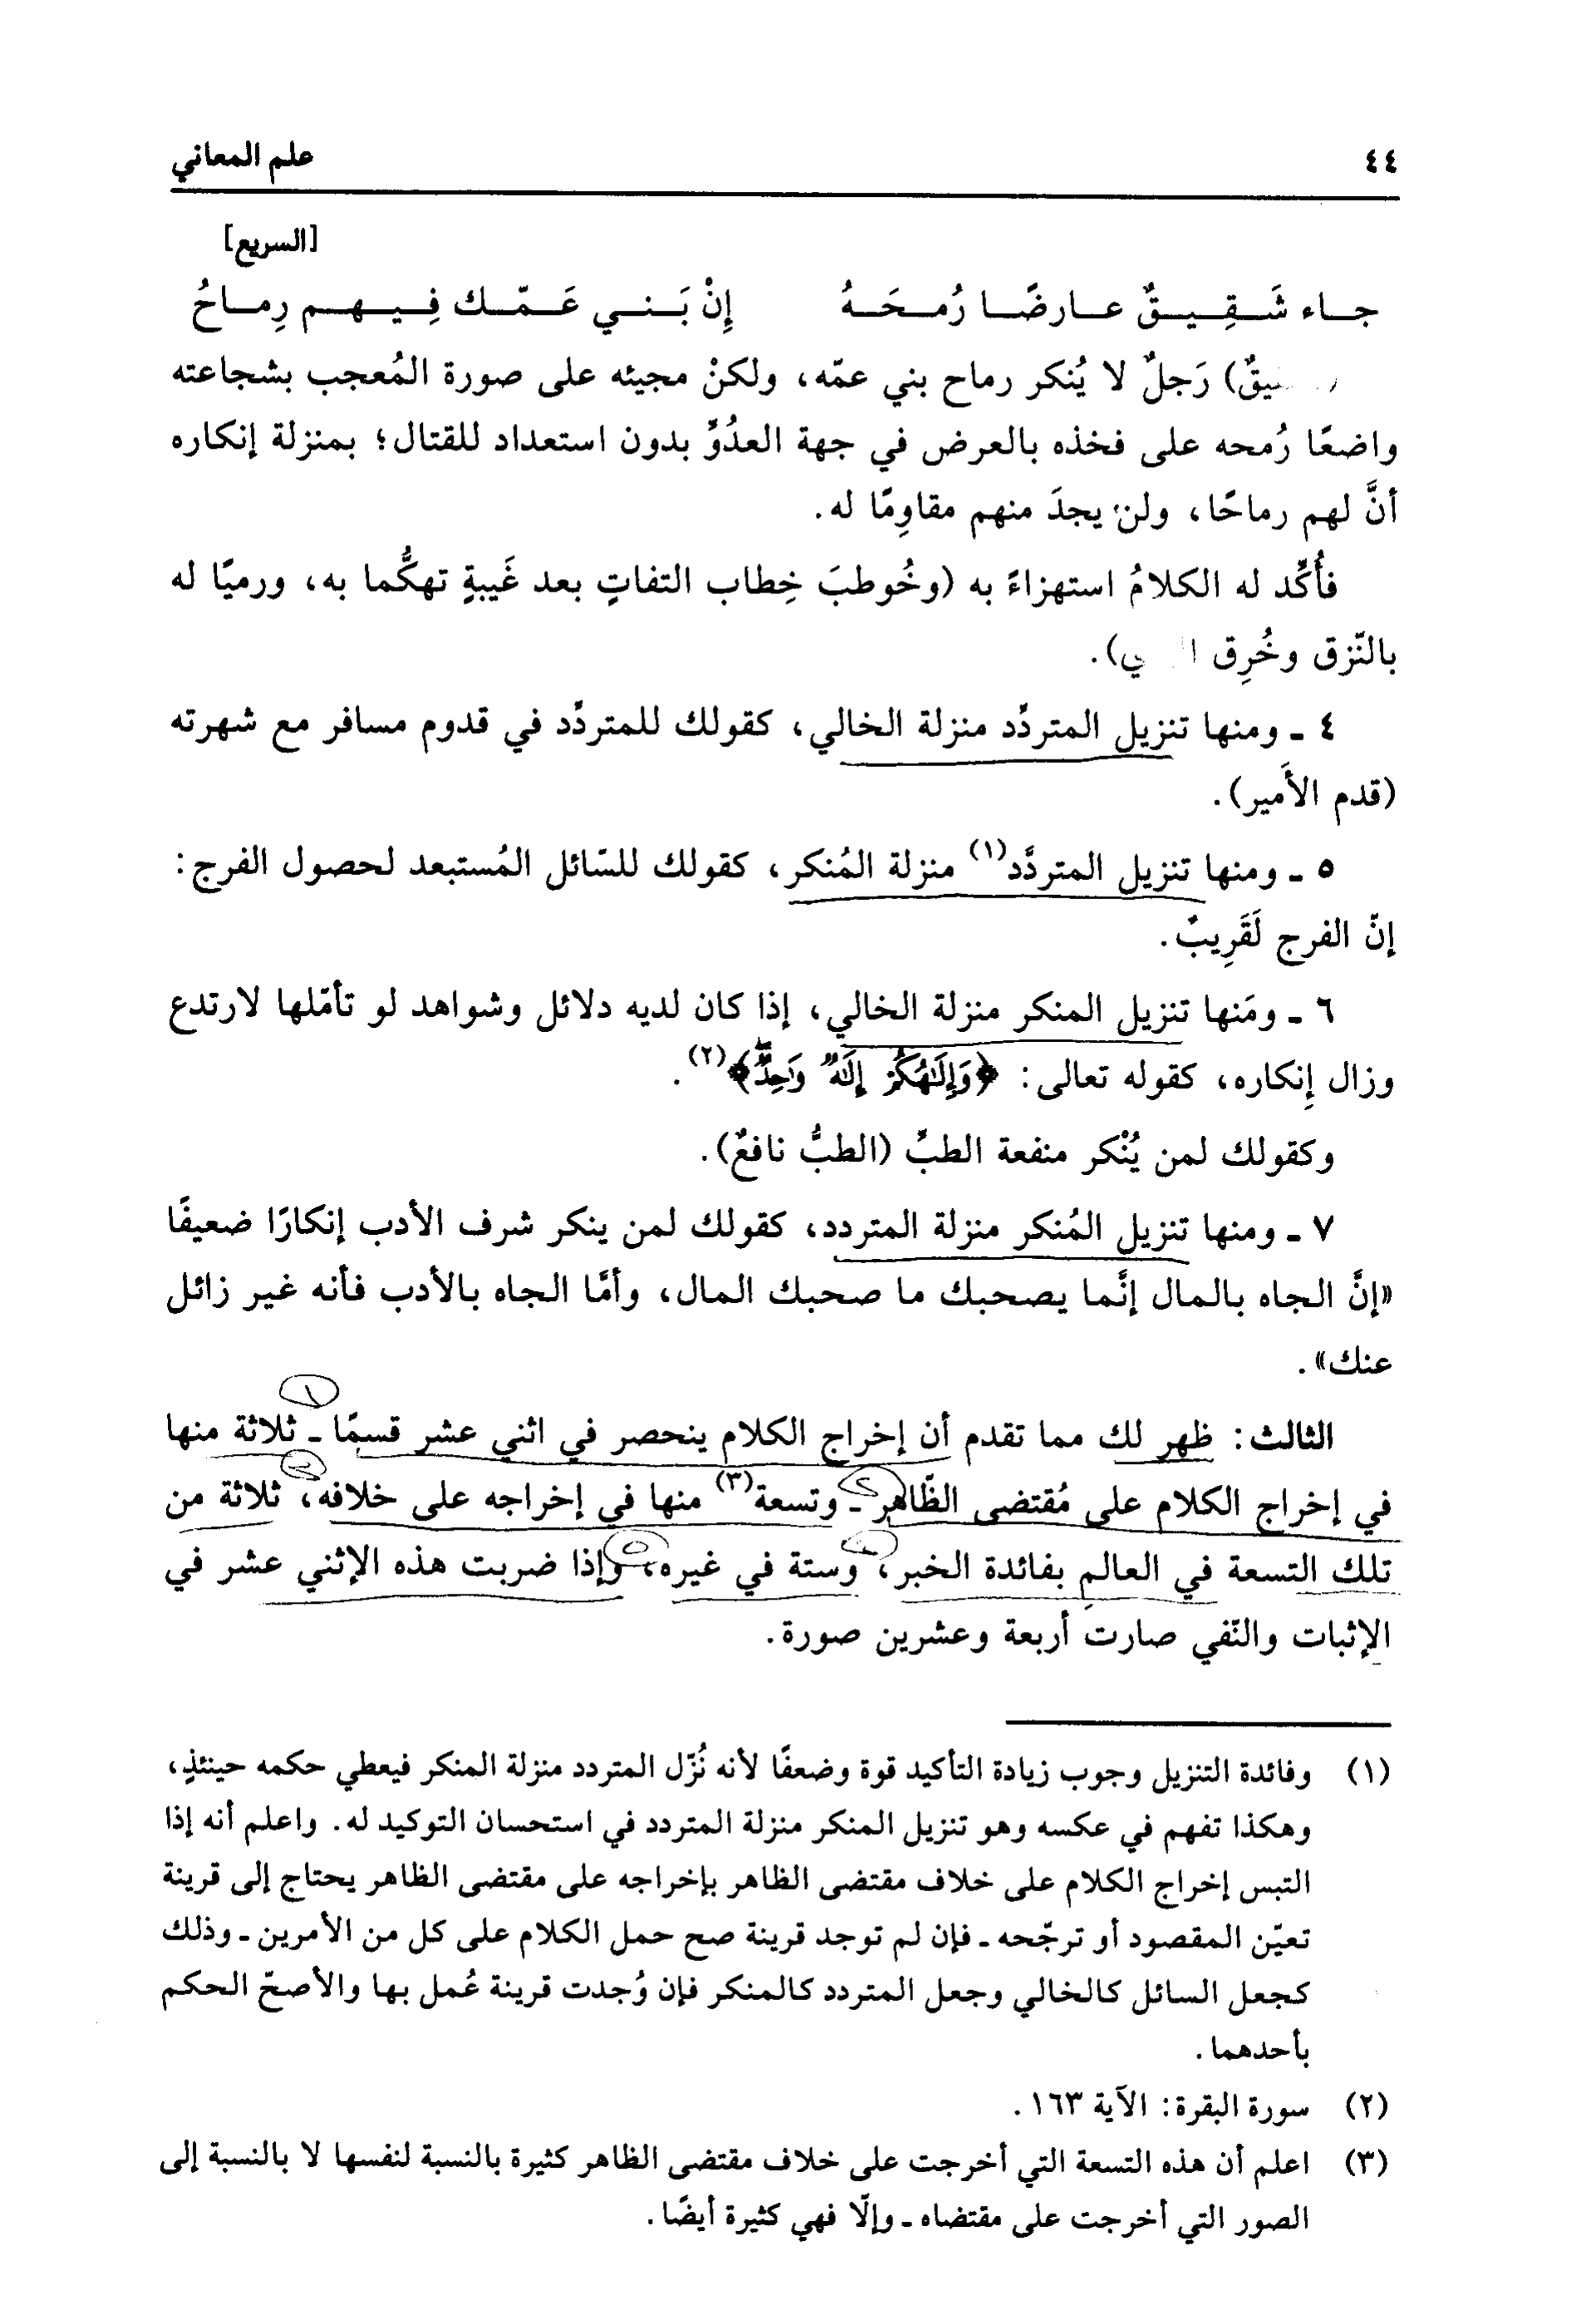 ٤٤ علم المعاني
[السريع]
جاء شَقِيقٌ عارضًا رُمحَهُ إنْ بَني عَمّك فِيهم رِماحُ
رَجلٌ لا يُنكر رماح بني عمّه، ولكنْ مجيئه على صورة المُعجب بشجاعته
واضعًا رُمحه على فخذه بالعرض في جهة العدُوِّ بدون استعداد للقتال؛ بمنزلة إنكاره
أنَّ لهم رماحًا، ولن يجدَ منهم مقاوِمًا له.
فأُكِّد له الكلامُ استهزاءً به (وخُوطبَ خِطاب التفاتٍ بعد غَيبةٍ تهكُّما به، ورميًا له
بالنّزق وخُرِق
٤ ـ ومنها تنزيل المتردِّد منزلة الخالي، كقولك للمتردِّد في قدوم مسافر مع شهرته
(قدم الأَمير).
٥ ـ ومنها تنزيل المتردَّد(١) منزلة المُنكر، كقولك للسّائل المُستبعد لحصول الفرج:
إنّ الفرج لَقَرِيبٌ.
٦ ـ ومَنها تنزيل المنكر منزلة الخالي، إذا كان لديه دلائل وشواهد لو تأمّلها لارتدع
وزال إِنكاره، كقوله تعالى: ﴿وَإِلَٰهُكُمْ إِلَٰهٌ وَٰحِدٌ﴾(٢).
وكقولك لمن يُنْكر منفعة الطبِّ (الطبُّ نافعٌ).
٧ ـ ومنها تنزيل المُنكر منزلة المتردد، كقولك لمن ينكر شرف الأدب إنكارًا ضعيفًا
«إنَّ الجاه بالمال إنَّما يصحبك ما صحبك المال، وأمَّا الجاه بالأدب فأنه غير زائل
عنك».
١
الثالث: ظهر لك مما تقدم أن إخراج الكلام ينحصر في اثني عشر قسمًا ـ ثلاثة منها
في إخراج الكلام على مُقتضى الظّاهر ـ وتسعة(٣) منها في إخراجه على خلافه، ثلاثة من
تلك التسعة في العالمِ بفائدة الخبر، وستة في غيره، وإذا ضربت هذه الإثني عشر في
الإثبات والنّفي صارت أربعة وعشرين صورة.
(١) وفائدة التنزيل وجوب زيادة التأكيد قوة وضعفًا لأنه نُزّل المتردد منزلة المنكر فيعطي حكمه حينئذٍ،
وهكذا تفهم في عكسه وهو تنزيل المنكر منزلة المتردد في استحسان التوكيد له. واعلم أنه إذا
التبس إخراج الكلام على خلاف مقتضى الظاهر بإخراجه على مقتضى الظاهر يحتاج إلى قرينة
تعيّن المقصود أو ترجّحه ـ فإن لم توجد قرينة صح حمل الكلام على كل من الأمرين ـ وذلك
كجعل السائل كالخالي وجعل المتردد كالمنكر فإن وُجدت قرينة عُمل بها والأصحّ الحكم
بأحدهما.
(٢) سورة البقرة: الآية ١٦٣.
(٣) اعلم أن هذه التسعة التي أخرجت على خلاف مقتضى الظاهر كثيرة بالنسبة لنفسها لا بالنسبة إلى
الصور التي أخرجت على مقتضاه ـ وإلّا فهي كثيرة أيضًا.